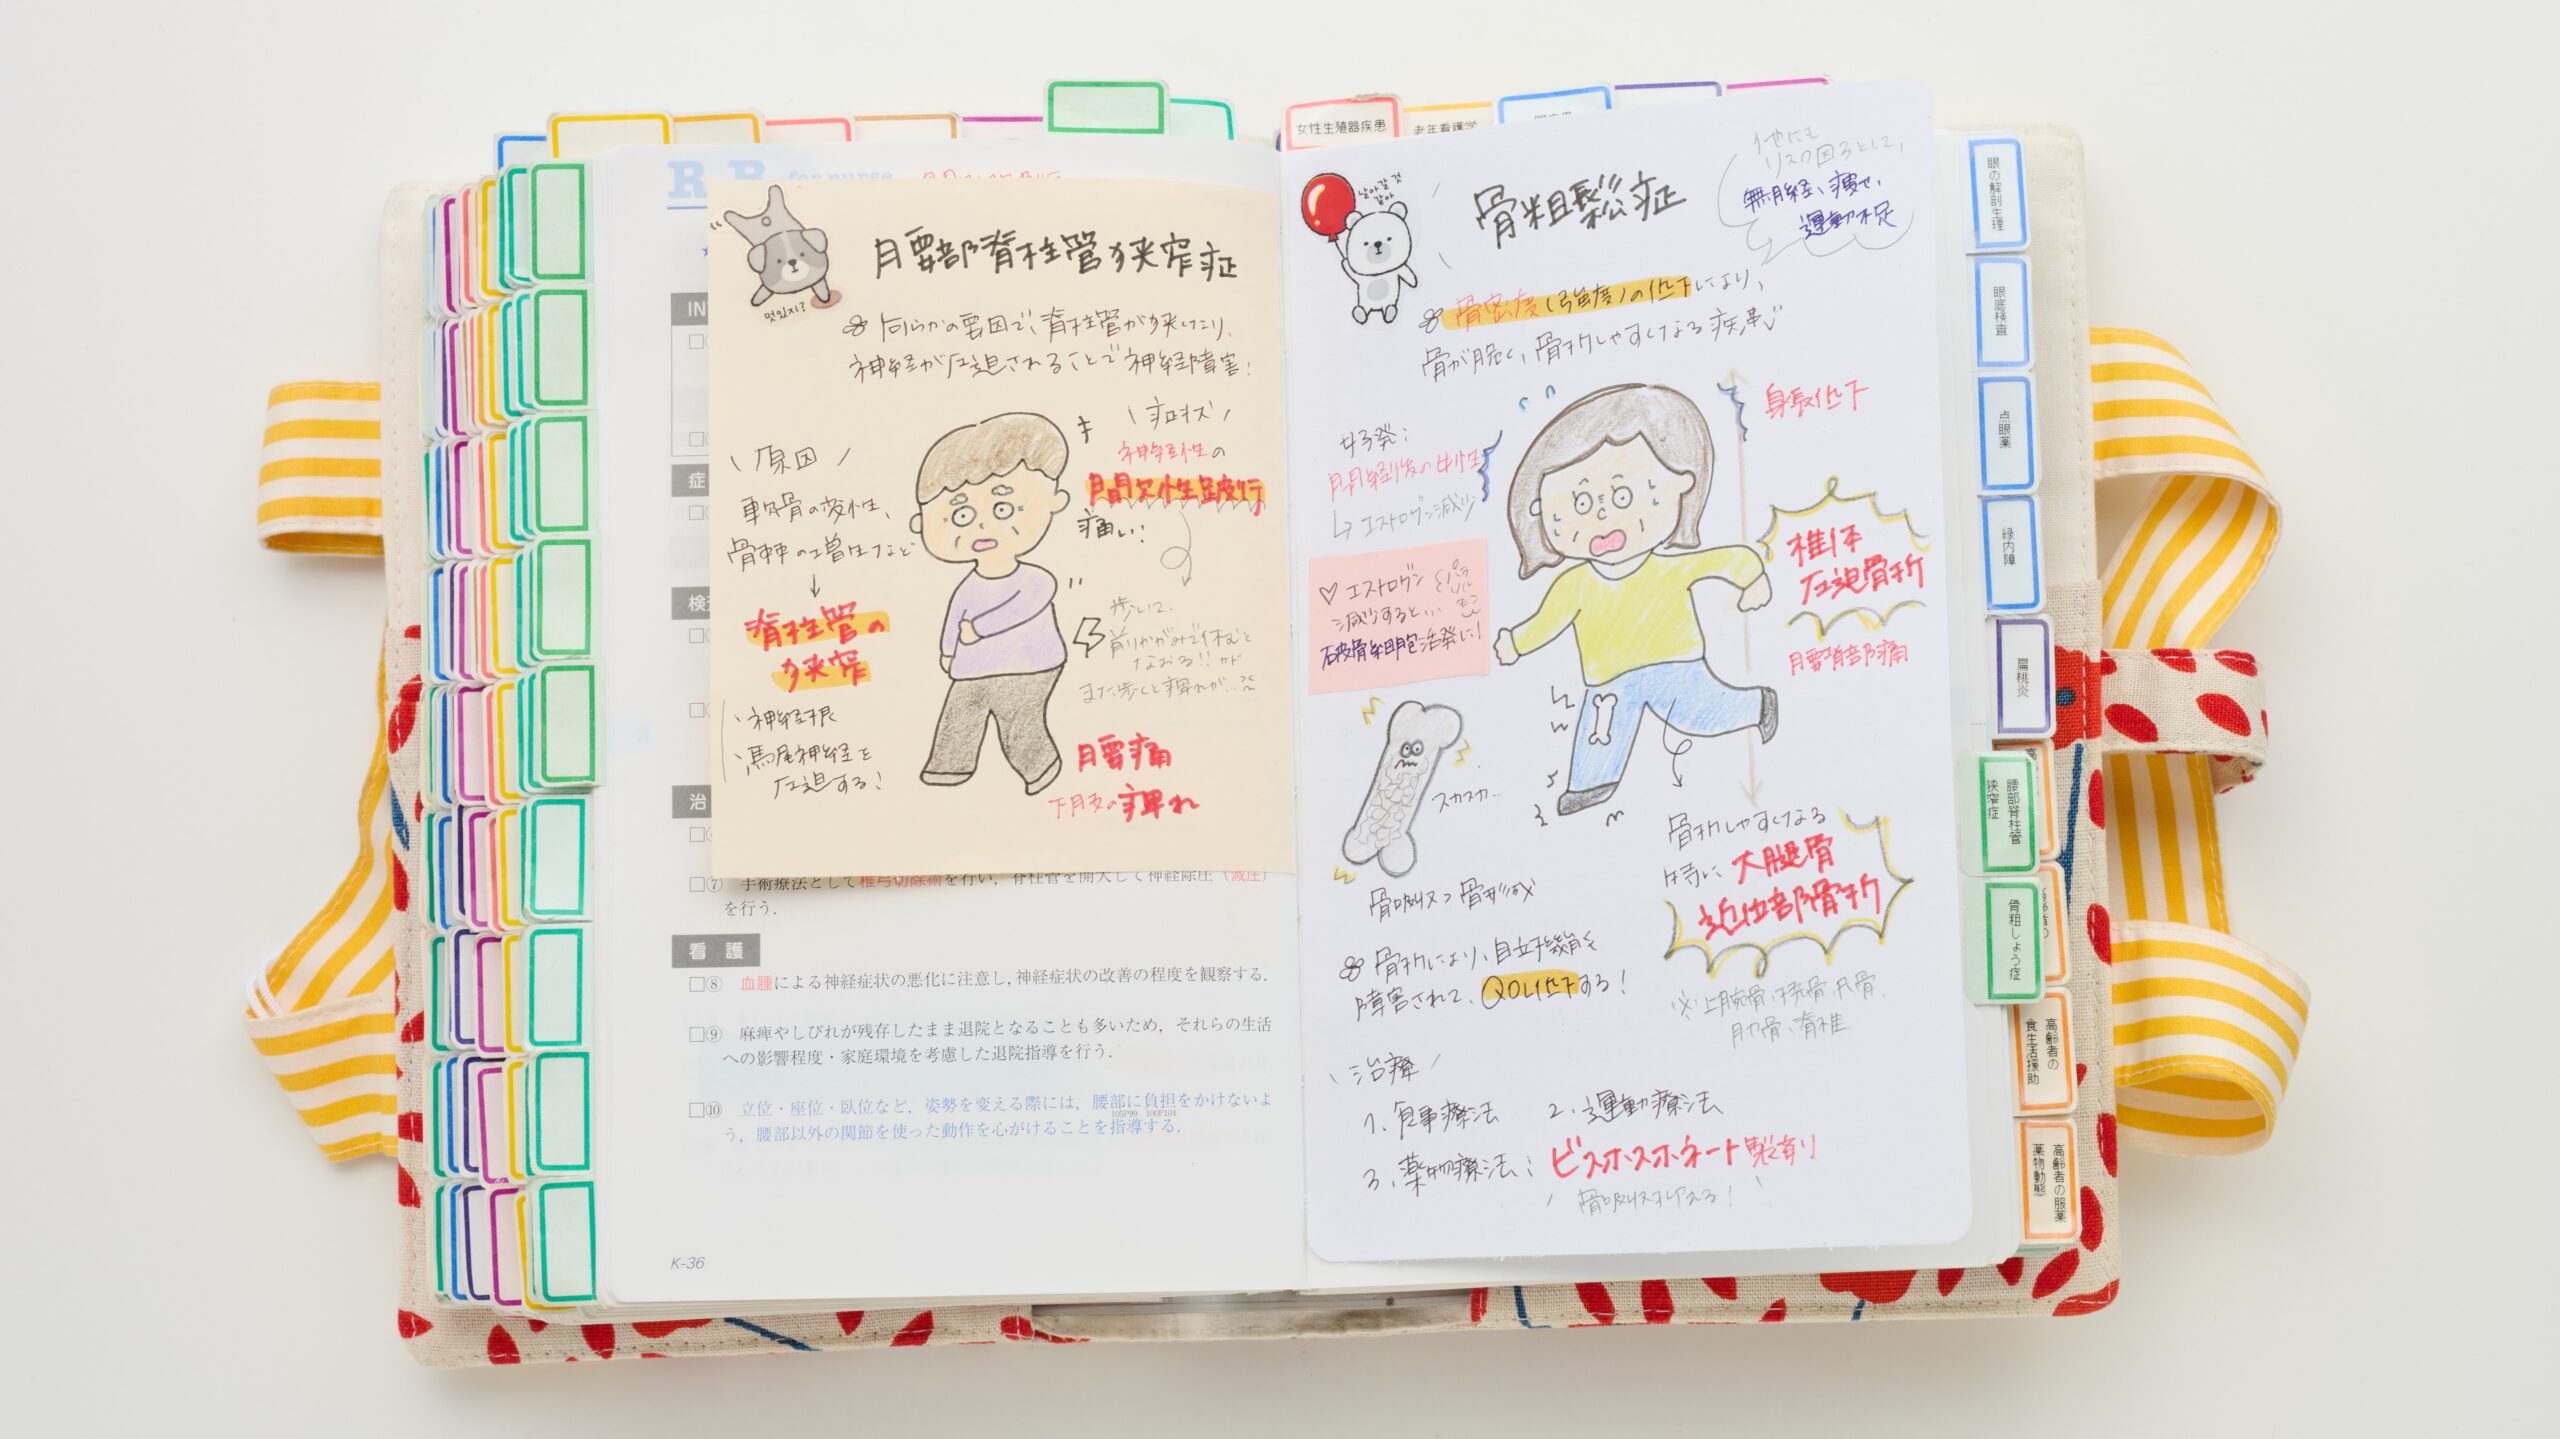 女性生殖器疾患
老年看護学
R B for nurse
멋있지?
腰部脊柱管狭窄症
何らかの要因で、脊柱管が狭くなり、
神経が圧迫されることで神経障害!
原因
軟骨の変性、
骨棘の増生など
↓
脊柱管の
狭窄
・神経根
・馬尾神経を
圧迫する!
症状
神経性の
間欠性跛行
痛い!
歩いて、
前かがみで休むと
なおる!!
また歩くと痺れが…
腰痛
下肢の痺れ
症
治
□⑦ 手術療法として椎弓切除術を行い,脊柱管を開大して神経除圧(減圧)
を行う.
看護
□⑧ 血腫による神経症状の悪化に注意し,神経症状の改善の程度を観察する.
□⑨ 麻痺やしびれが残存したまま退院となることも多いため,それらの生活
への影響程度・家庭環境を考慮した退院指導を行う.
□⑩ 立位・座位・臥位など,姿勢を変える際には,腰部に負担をかけないよ
う,腰部以外の関節を使った動作を心がけることを指導する.
105P99 100P104
K-36
날아갈 것
같아
骨粗鬆症
他にも
リスク因子として、
無月経、痩せ、
運動不足
骨密度(強度)の低下により、
骨が脆く、骨折しやすくなる疾患
好発:
閉経後の女性
↳エストロゲン減少
♡エストロゲン
減少すると…
破骨細胞活発に!
身長低下
椎体
圧迫骨折
腰背部痛
スカスカ..
骨吸収>骨形成
骨折しやすくなる
特に大腿骨
近位部骨折
※上腕骨、橈骨、尺骨、
肋骨、脊椎
骨折により、自立機能
障害されて、QOL低下する!
治療
1、食事療法 2、運動療法
3、薬物療法:ビスホスホネート製剤
骨吸収抑える!
眼の解剖生理
眼底検査
点眼薬
緑内障
扁桃炎
腰部脊柱管
狭窄症
骨粗しょう症
高齢者の
食生活援助
高齢者の服薬
薬物動態